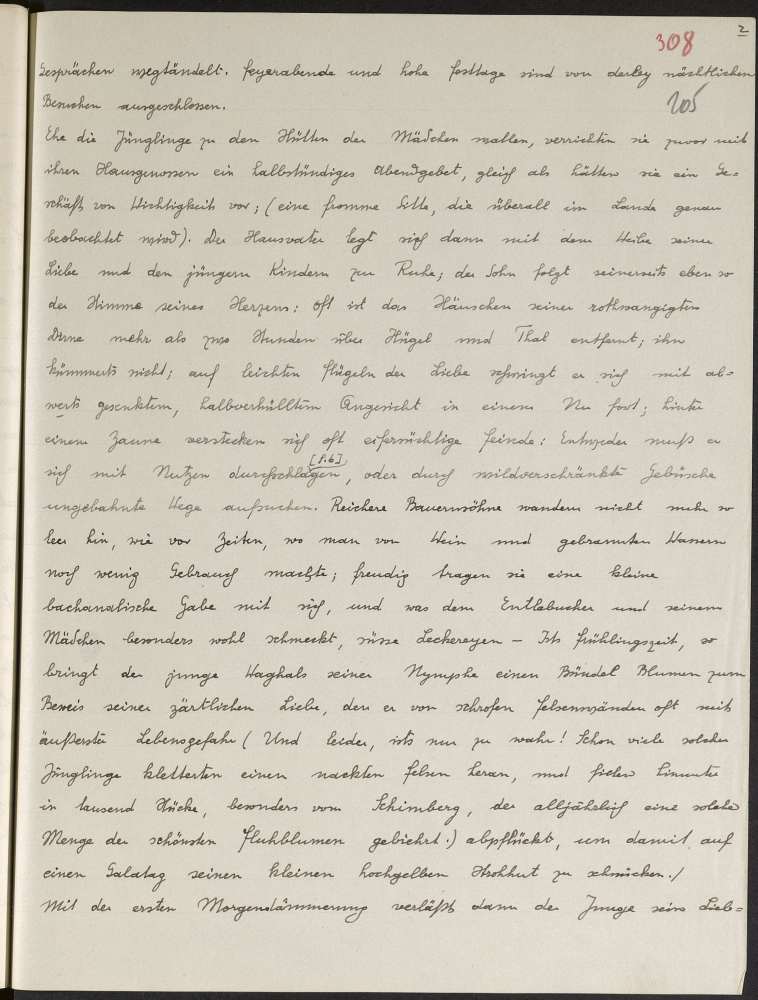 2
308
205
Gesprächen wegtändelt. Feyerabende und hohe Festtage sind von derley nächtlichen
Besuchen ausgeschlossen.
Ehe die Jünglinge zu den Hütten der Mädchen wallen, verrichten sie zuvor mit
ihren Hausgenossen ein halbstündiges Abendgebet, gleich als hätten sie ein Ge=
schäft von Wichtigkeit vor; (eine fromme Sitte, die überall im Lande genau
beobachtet wird). Der Hausvater legt sich dann mit dem Weibe seiner
Liebe und den jüngern Kindern zur Ruhe; der Sohn folgt seinerseits eben so
der Stimme seines Herzens: oft ist das Häuschen seiner rothwangigten
Dirne mehr als zwo Stunden über Hügel und Thal entfernt; ihn
kümmerts nicht; auf leichten Flügeln der Liebe schwingt er sich mit ab=
werts gesenktem, halbverhülltem Angesicht in einem Nu fort; hinter
einem Zaune verstecken sich oft eifersüchtige Feinde: Entweder muß er
[S.6]
sich mit Nutzen durchschlagen, oder durch wildverschränkte Gebüsche
ungebahnte Wege aufsuchen. Reichere Bauernsöhne wandern nicht mehr so
leer hin, wie vor Zeiten, wo man von Wein und gebrannten Wassern
noch wenig Gebrauch machte; freudig tragen sie eine kleine
bachanalische Gabe mit sich, und was dem Entlebucher und seinem
Mädchen besonders wohl schmeckt, süsse Leckereyen – Ists Frühlingszeit, so
bringt der junge Waghals seiner Nymphe einen Bündel Blumen zum
Beweis seiner zärtlichen Liebe, den er von schrofen Felsenwänden oft mit
äußerster Lebensgefahr (Und leider, ists nur zu wahr! Schon viele solcher
Jünglinge kletterten einen nackten Felsen heran, und fielen hinunter
in tausend Stücke, besonders vom Schimberg, der alljährlich eine solche
Menge der schönsten Fluhblumen gebiehrt.) abpflückt, um damit auf
einen Galatag seinen kleinen hochgelben Strohhut zu schmücken./
Mit der ersten Morgendämmerung verläßt dann der Junge sein Lieb=